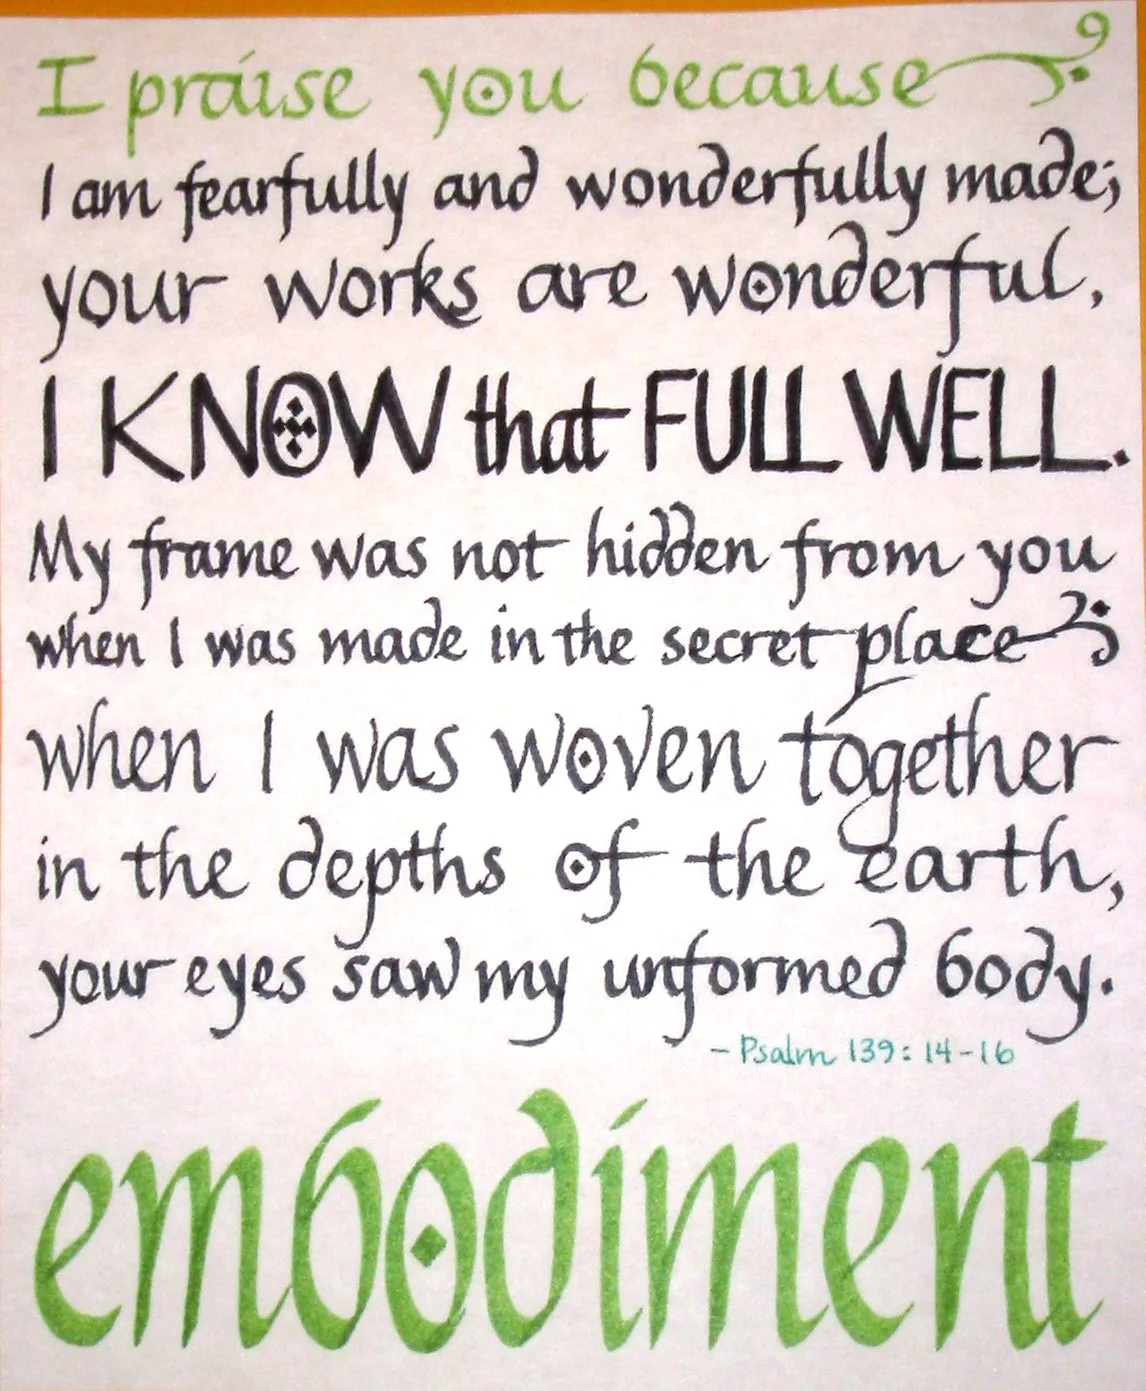 I praise you because
I am fearfully and wonderfully made;
your works are wonderful,
I KNOW that FULL WELL.
My frame was not hidden from you
when I was made in the secret place
when I was woven together
in the depths of the earth,
your eyes saw my unformed body.
- Psalm 139: 14-16
embodiment